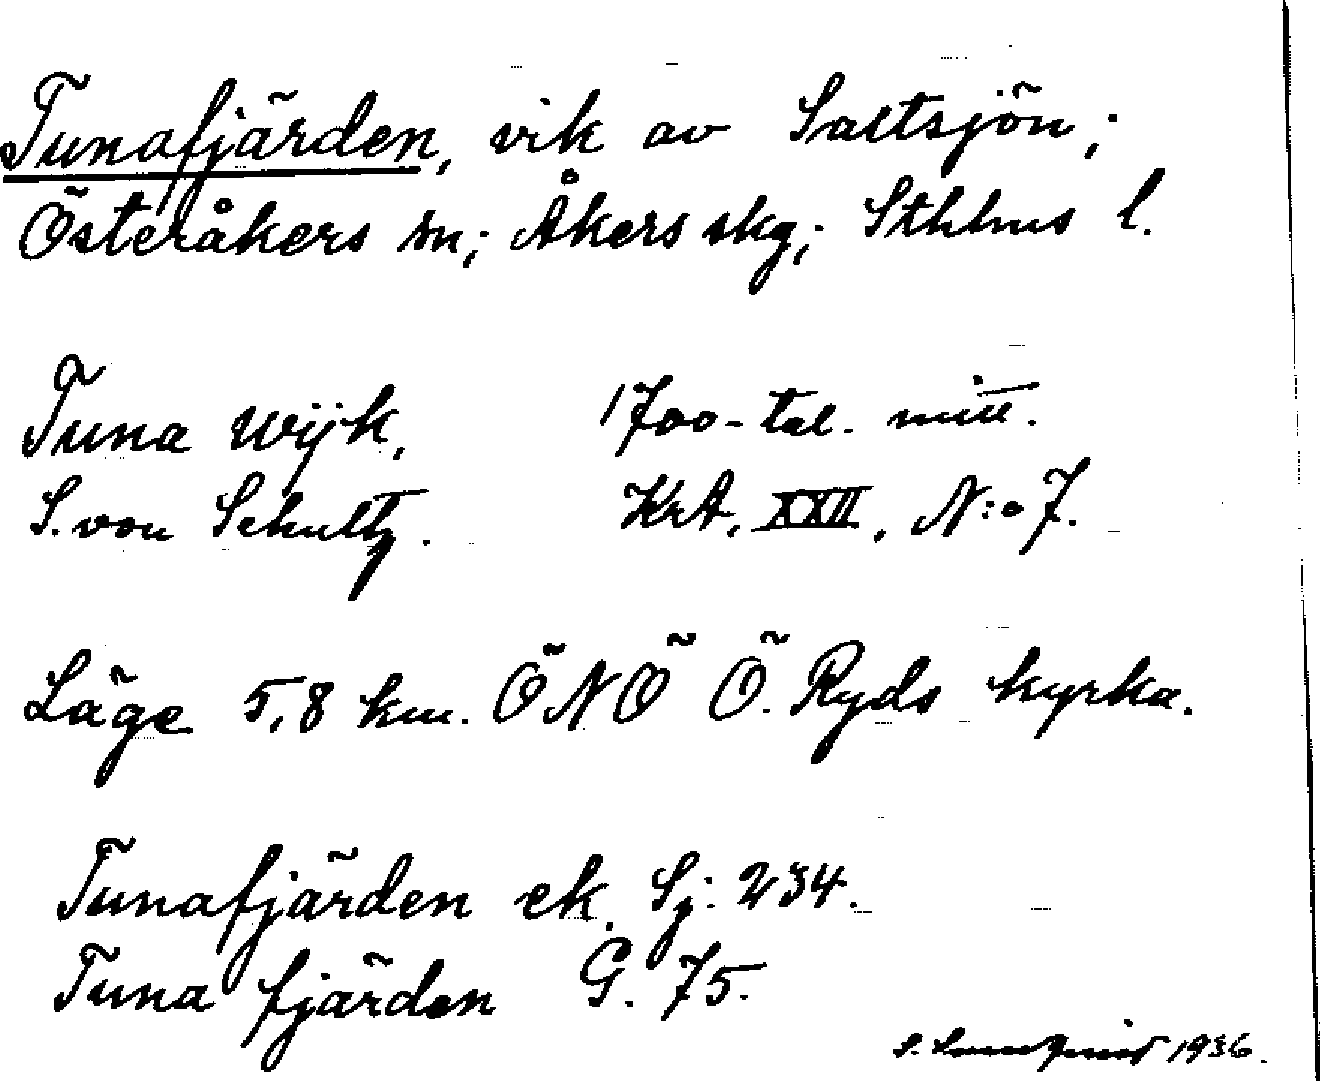 Tunafjärden, vik av Saltsjön;
Österåkers sn; Åkers skg; Sthlms l.
Tuna wijk, 1700-tal. mitt.
S. von Schultz. KrA, XXII, N:o 7.
Läge 5,8 km. ÖNÖ Ö. Ryds kyrka.
Tunafjärden ek. Sj: 234.
Tuna fjärden G. 75.
S. 1936.